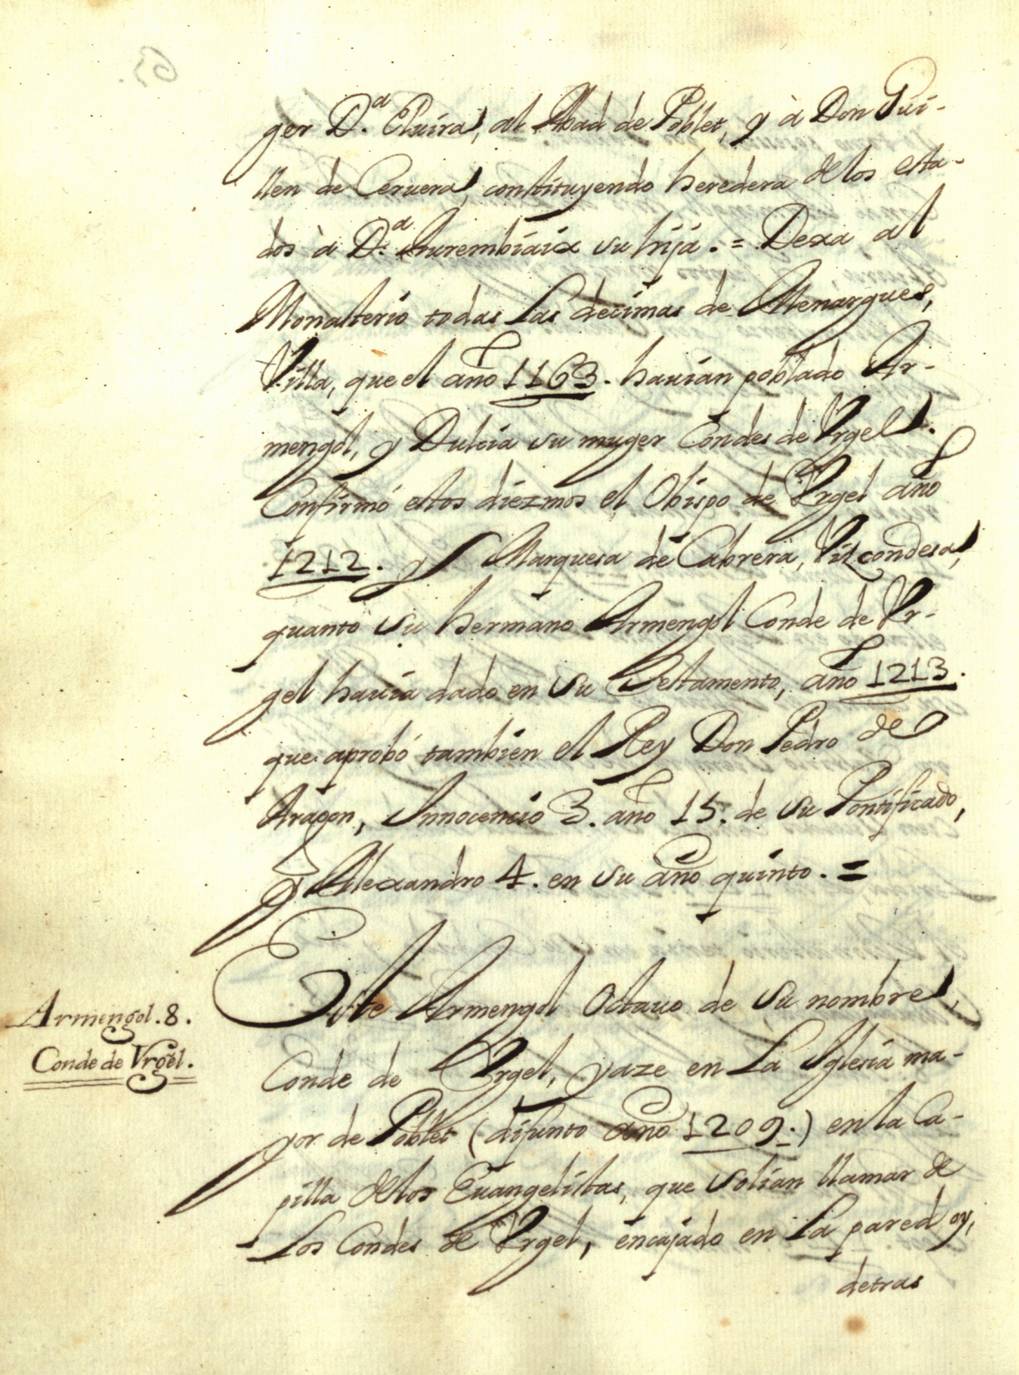 ger D.ª Eluira, al Abad de Poblet, y à Don Gui-
llen de Ceruera, constituyendo heredera de los esta-
dos à D.ª Aurembiaix su hija. = Dexa al
Monasterio todas las decimas de Menargues,
Villa, que el año 1163. hauian poblado Ar-
mengol, y Dulcia su muger Condes de Vrgel.
Confirmó estos diezmos el Obispo de Vrgel año
1212. y Marquesa de Cabrera, Vizcondesa,
quanto su hermano Armengol Conde de Vr-
gel hauia dado en su Testamento, año 1213.
que aprobó tambien el Rey Don Pedro de
Aragon, Innocencio 3. año 15. de su Pontificado,
y Alexandro 4. en su año quinto. =
Armengol. 8.
Conde de Vrgel.
Este Armengol Octauo de su nombre,
Conde de Vrgel, yaze en la Iglesia ma-
yor de Poblet (difunto año 1209.) en la Ca-
pilla de los Euangelistas, que solian llamar de
los Condes de Vrgel, encajado en la pared oy,
detras